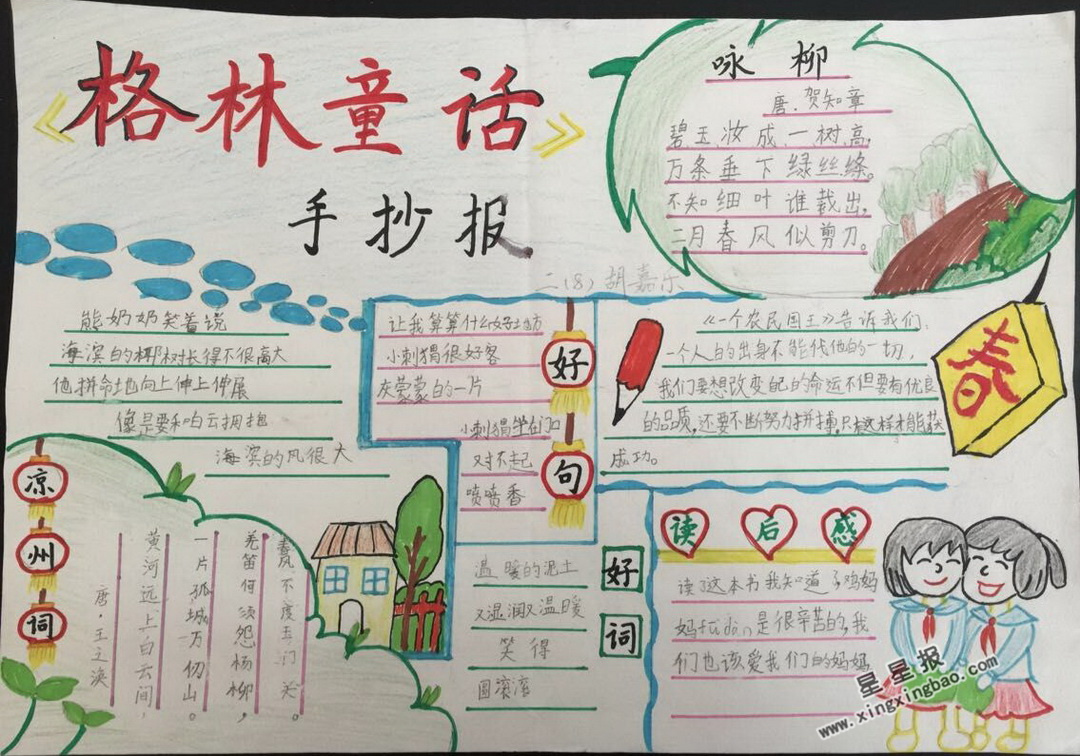 《格林童话》
手抄报
二(8)胡嘉乐
咏柳
唐.贺知章
碧玉妆成一树高,
万条垂下绿丝绦。
不知细叶谁裁出,
二月春风似剪刀。
熊奶奶笑着说
海滨的椰树长得不很高大
他拼命地向上伸上伸展
像是要和白云拥抱
海滨的风很大
让我算算什么好地方
小刺猬很好客
灰蒙蒙的一片
小刺猬坐在门口
对不起
喷喷香
好句
《一个农民国王》告诉我们:
一个人的出身不能代他的一切,
我们要想改变自己的命运不但要有优良
的品质,还要不断努力拼搏,只有这样才能获
成功。
春
凉州词
唐.王之涣
黄河远上白云间,
一片孤城万仞山。
羌笛何须怨杨柳,
春风不度玉门关。
温暖的泥土
又湿润又温暖
笑得
圆滚滚
好词
读后感
读了这本书我知道了鸡妈
妈fudan是很辛苦的,我
们也该爱我们的妈妈
星星报
www.xingxingbao.com